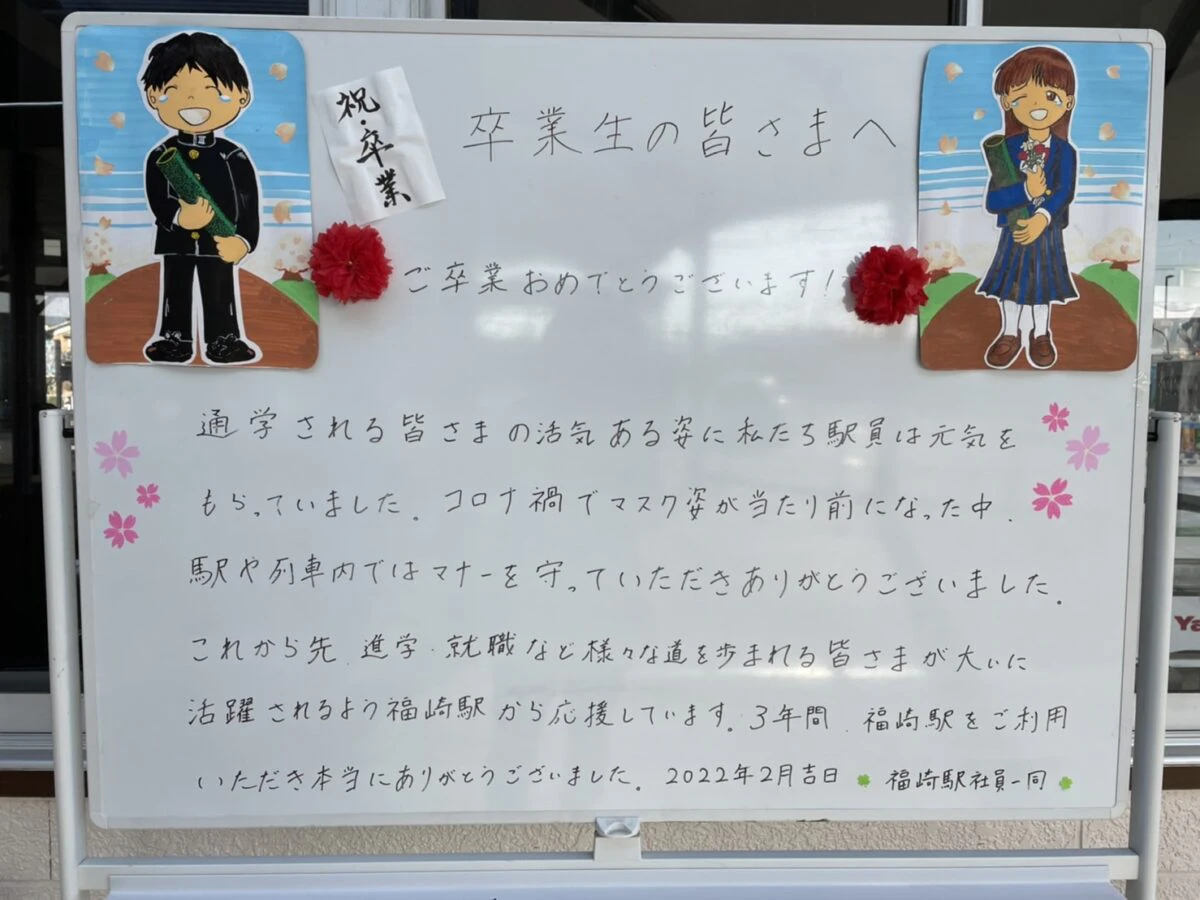 祝・卒業
卒業生の皆さまへ
ご卒業おめでとうございます!
通学される皆さまの活気ある姿に私たち駅員は元気を
もらっていました。コロナ禍でマスク姿が当たり前になった中、
駅や列車内ではマナーを守っていただきありがとうございました。
これから先、進学・就職など様々な道を歩まれる皆さまが大いに
活躍されるよう福崎駅から応援しています。3年間、福崎駅をご利用
いただき本当にありがとうございました。2022年2月吉日 福崎駅社員一同
Ya